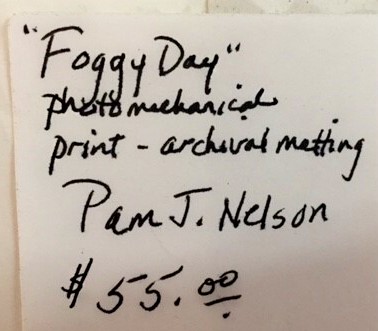 "Foggy Day"
photomechanical
print - archival matting
Pam J. Nelson
$55.00